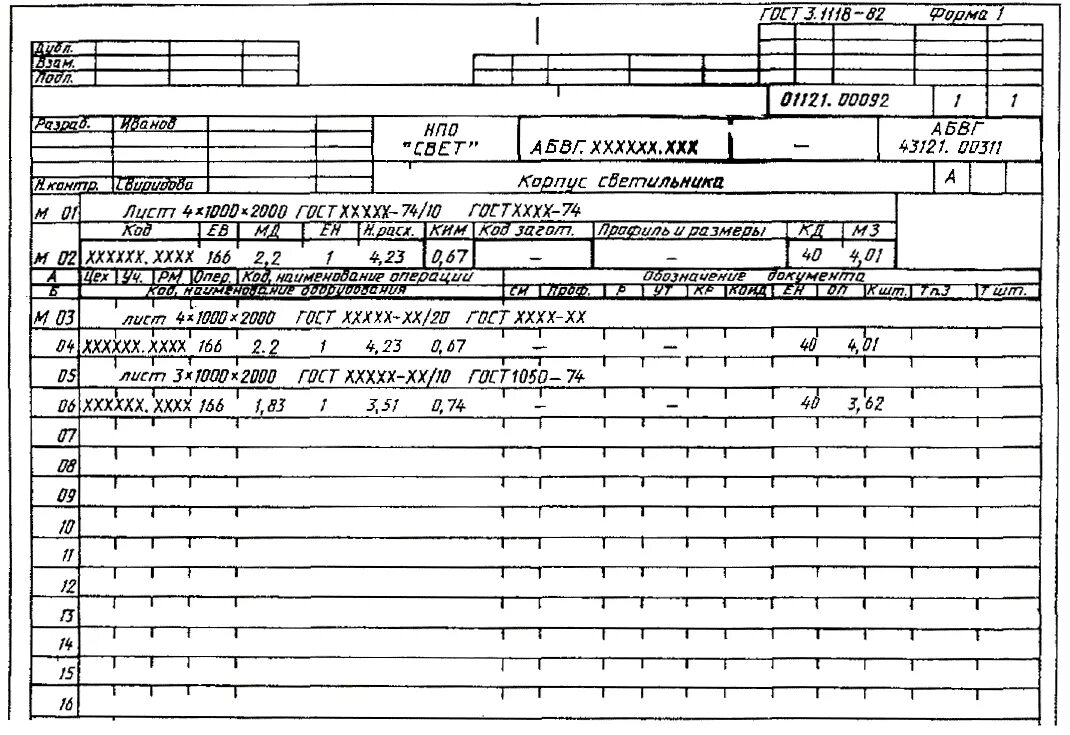 ГОСТ 3.1118-82 Форма 1
Дубл.
Взам.
Подл.
01121.00092 1 1
Разраб. Иванов НПО "СВЕТ" АБВГ.XXXXXX.XXX — АБВГ 43121.00311
Н.контр. Свиридова Корпус светильника А
М 01 Лист 4×1000×2000 ГОСТ XXXXX-74/10 ГОСТ XXXX-74
Код ЕВ МД ЕН Н.расх. КИМ Код загот. Профиль и размеры КД МЗ
М 02 XXXXXX.XXXX 166 2,2 1 4,23 0,67 — — 40 4,01
А Цех Уч. РМ Опер. Код, наименование операции Обозначение документа
Б Код, наименование оборудования СИ Проф. Р УТ КР КОИД ЕН ОП Кшт. Тп.з Тшт.
М 03 лист 4×1000×2000 ГОСТ XXXXX-XX/20 ГОСТ XXXX-XX
04 XXXXXX.XXXX 166 2.2 1 4,23 0,67 — — 40 4,01
05 лист 3×1000×2000 ГОСТ XXXXX-XX/10 ГОСТ1050-74
06 XXXXXX.XXXX 166 1,83 1 3,51 0,74 — — 40 3,62
07
08
09
10
11
12
13
14
15
16